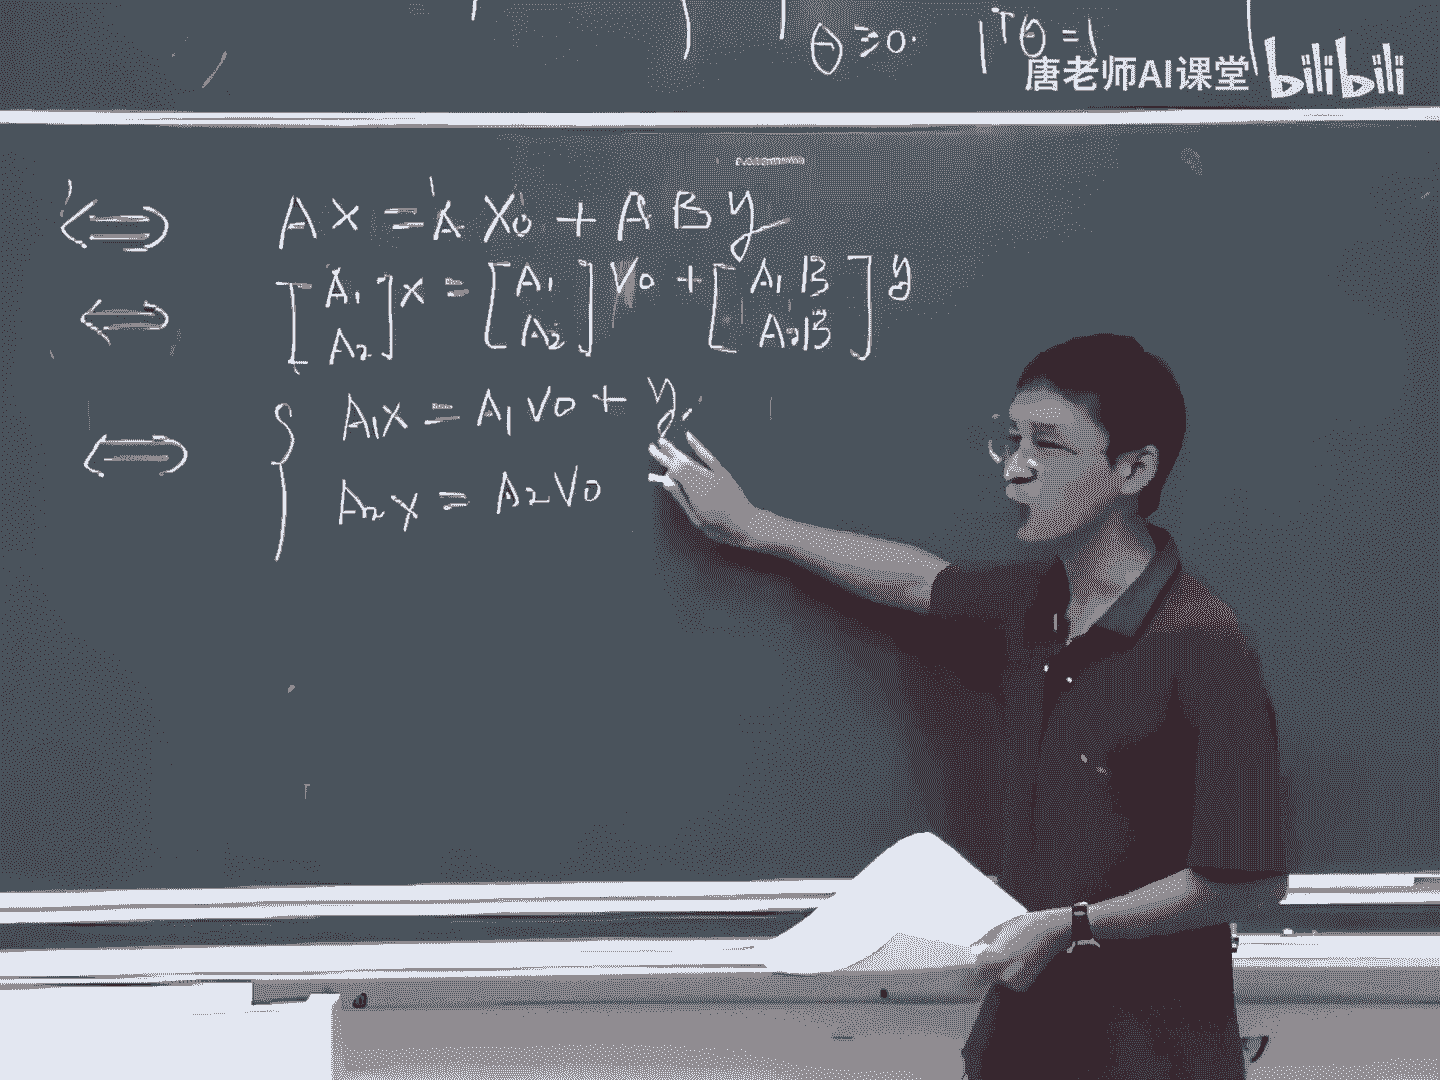 θ ≥ 0. 1ᵀθ = 1
唐老师AI课堂 bilibili
⟺ AX = A X0 + A B y
⟺ [A1 A2] x = [A1 A2] V0 + [A1B A2B] y
⟺ { A1X = A1V0 + y.
A2X = A2V0